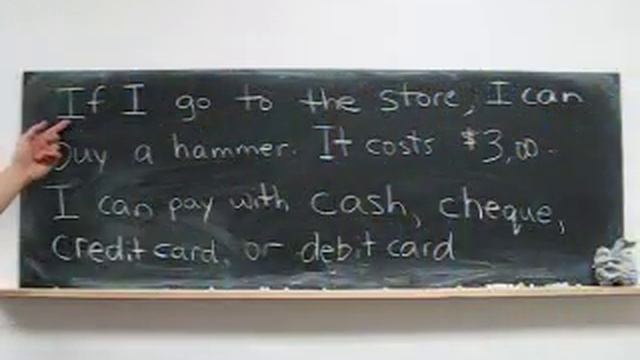 If I go to the store, I can
buy a hammer. It costs $3.00.
I can pay with cash, cheque,
credit card, or debit card